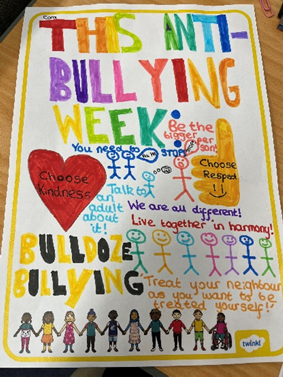 Cora
THIS ANTI-
BULLYING
WEEK:
Be the
bigger
person!
You need to STOP
Choose
Kindness
Choose
Respect
Talk to
an
adult
about
it!
We are all different!
Live together in harmony!
BULLDOZE
BULLYING
"Treat your neighbour
as you want to be
treated yourself!"
twinkl